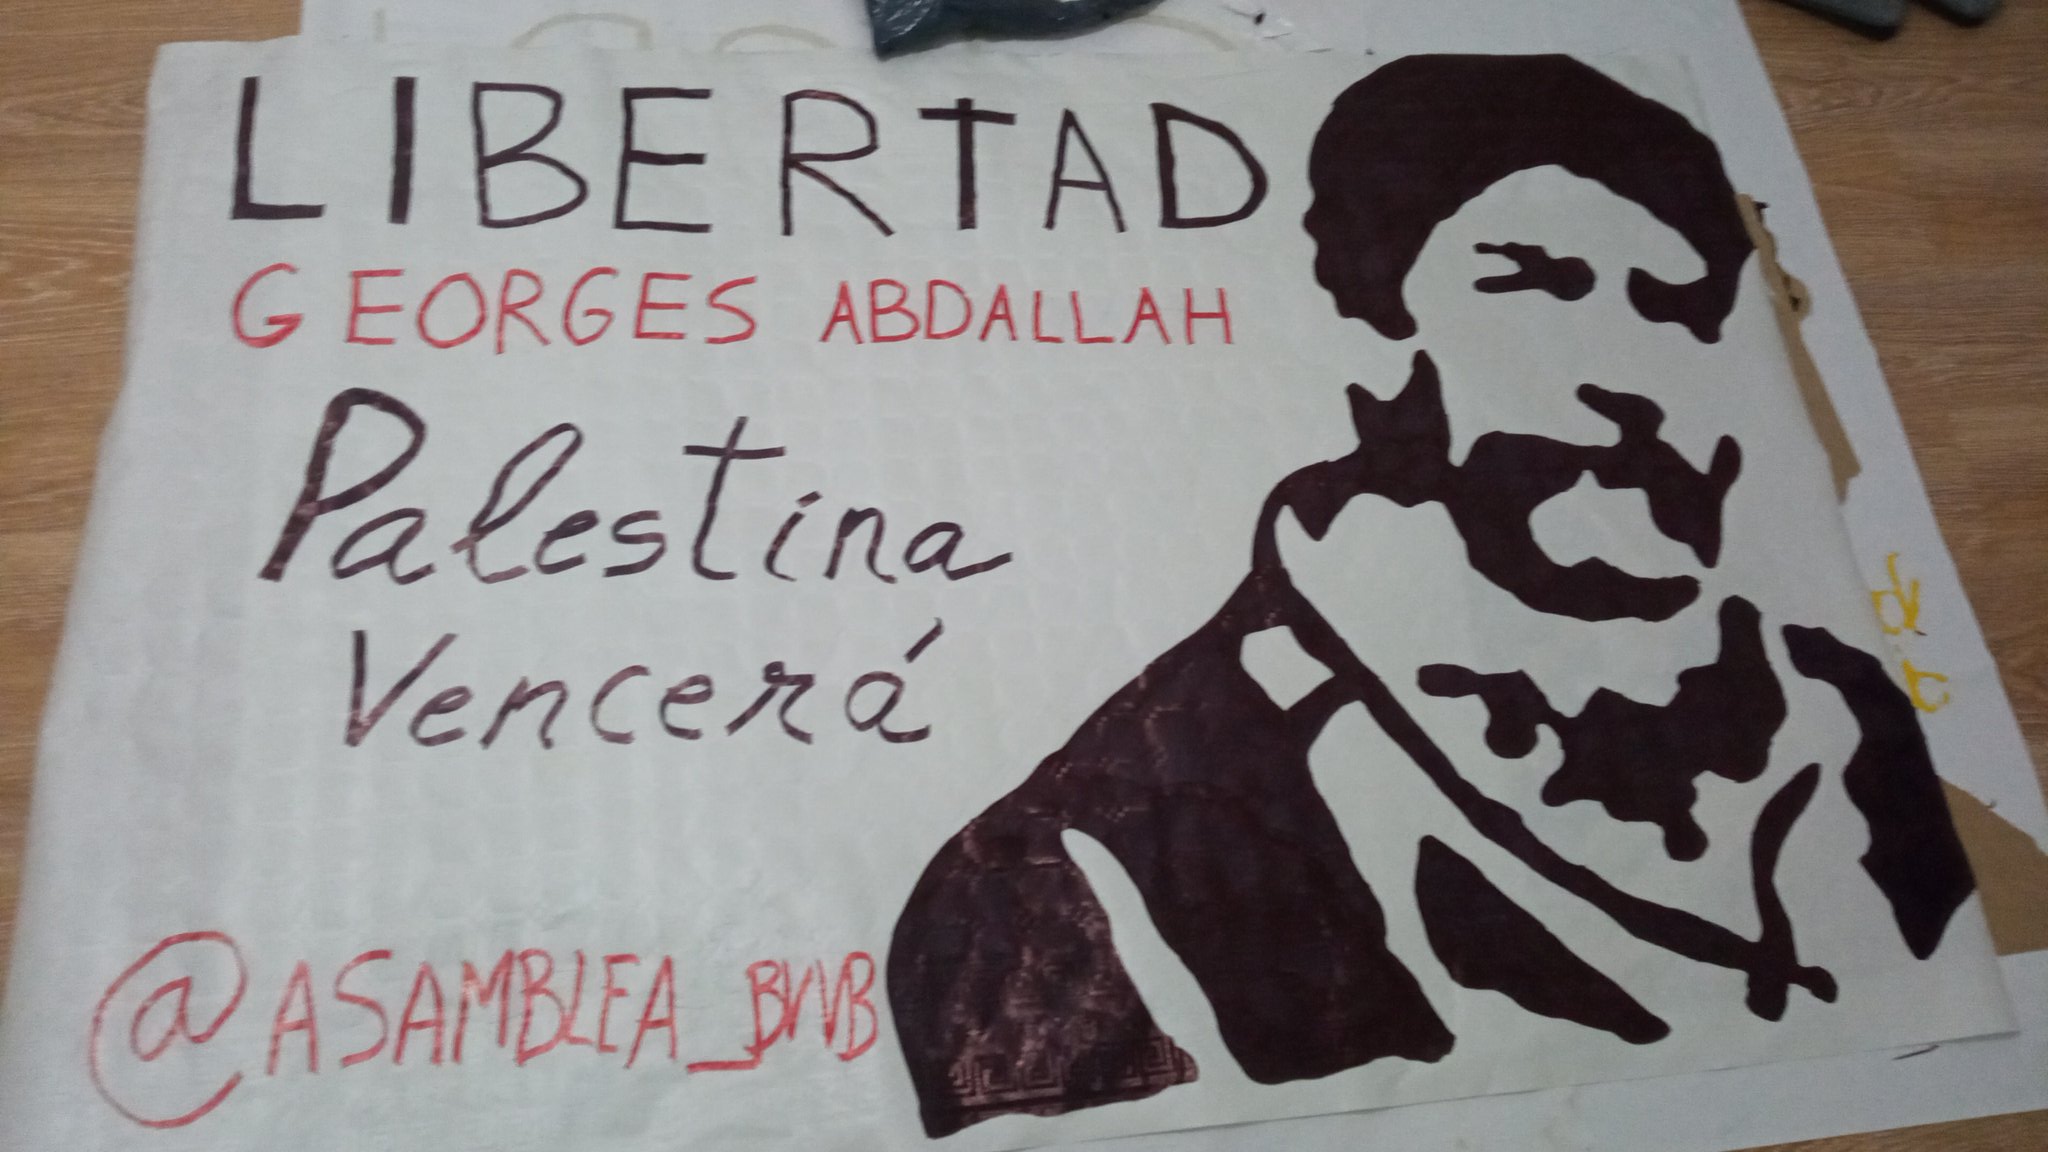 LIBERTAD
GEORGES ABDALLAH
Palestina
Vencerá
@ASAMBLEA_BVVB